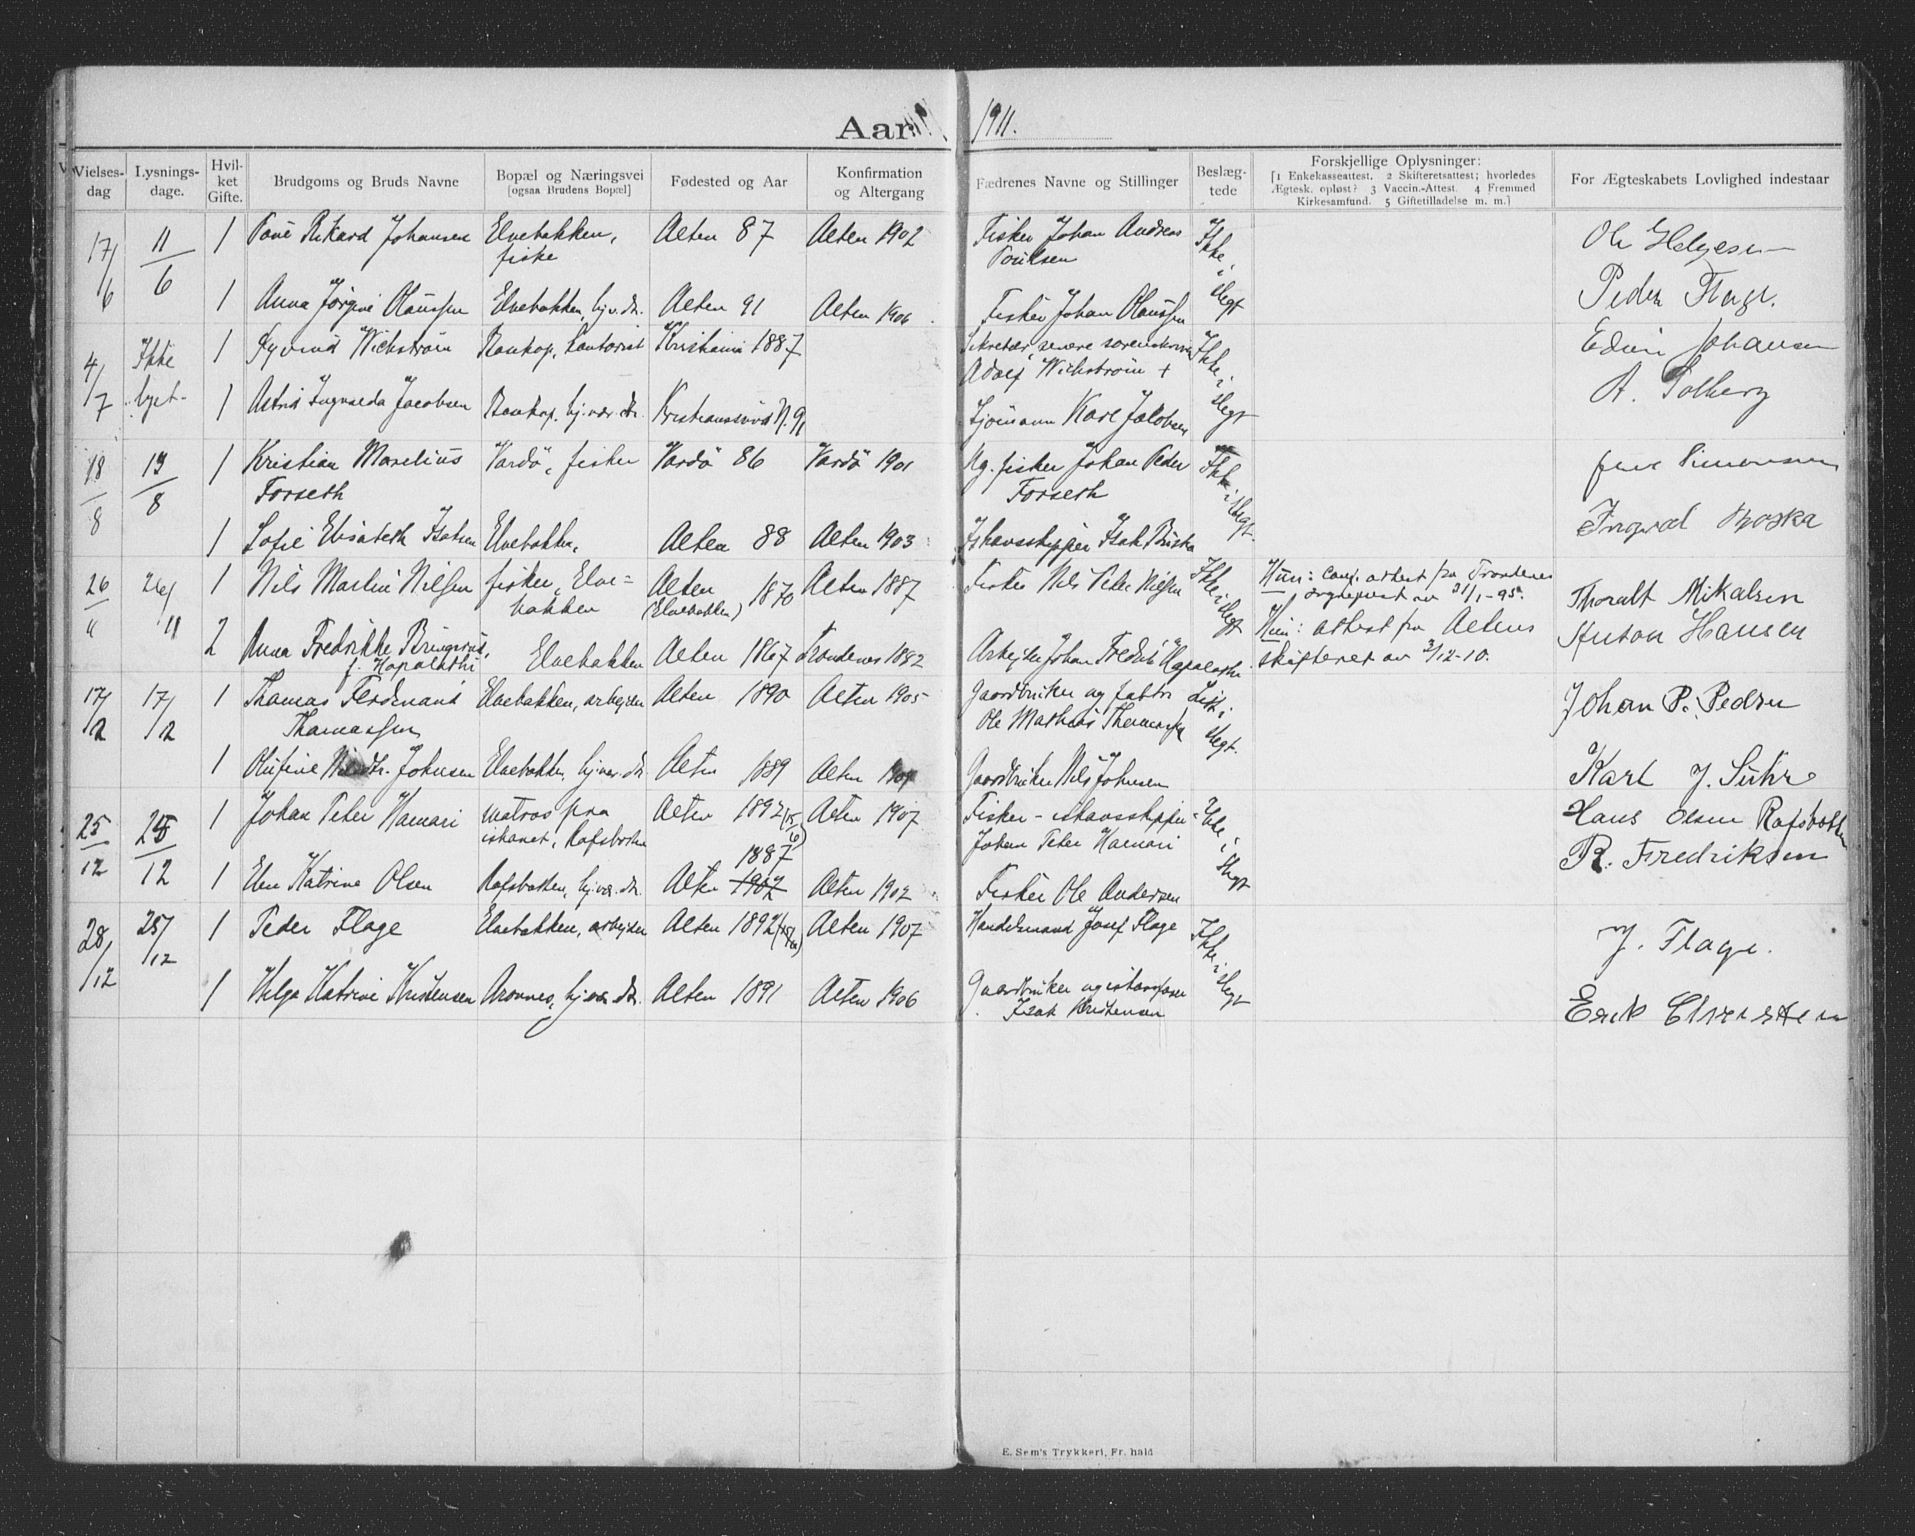 Aar 1911.
Vielses-
dag
Lysnings-
dage.
Hvil-
ket
Gifte.
Brudgoms og Bruds Navne
Bopæl og Næringsvei
[ogsaa Brudens Bopæl]
Fødested og Aar
Konfirmation
og Altergang
Fædrenes Navne og Stillinger
Beslæg-
tede
Forskjellige Oplysninger:
[1 Enkekasseattest. 2 Skifteretsattest; hvorledes
Ægtesk. opløst? 3 Vaccin.-Attest. 4 Fremmed
Kirkesamfund. 5 Giftetilladelse m. m.]
For Ægteskabets Lovlighed indestaar
17/6 11/6 1 Rikard Johansen Elvebakken, Alten 87 Alten 1902 Fisker Johan Andreas Ikke i slegt Ole Helgesen
fiske Poulsen
1 Anna Jørgine Olaussen Elvebakken, hj.v.dr. Alten 91 Alten 1906 Fisker Johan Olaussen Peder Flage.
4/7 Ikke lyst. 1 Eyvind Wichstrøm Kontorist Kristiania 1887 Sekretær, senere sorenskriver Ikke i slegt Edvin Johansen
Adolf Wichstrøm +
1 Astrid Jacobsen hj. vær. dr. Kristianssund N. 91 Sjømann Karl Jakobsen A. Solberg
18/8 13/8 1 Kristian Marelius Vardø, fisker Vardø 86 Vardø 1901 fisker Johan Peder Ikke i slegt. Simonsen
Forseth Forseth
1 Sofie Elisabeth Isaksen Elvebakken, Alten 88 Alten 1903 Ishavsskipper Isak Ingvald
26/11 26/11 1 Nils Martin Nilsen fisker, Elve- Alten 1870 Alten 1887 Fisker Nils Peder Nilsen Ikke i slegt Hun: conf. attest fra Trondenes
bakken (Elvebakken) sogneprest av 31/1-95. Thoralf Mikalsen
2 Anna Fredrikke Elvebakken Alten 1867 Trondenes 1882 Arbeider Johan Fredrik Hun: attest fra Altens Anton Hansen
f. skifteret av 3/12-10.
17/12 17/12 1 Thomas Ferdinand Elvebakken, arbeider Alten 1890 Alten 1905 Gaardbruker og i slegt. Johan P. Pedersen
Thomassen Ole Mathias Thomassen
1 Olufine Nilsdtr. Johnsen Elvebakken, hj.vær. dr. Alten 1889 Alten Gaardbruker Nils Johnsen Karl J. Suhr
25/12 25/12 1 Johan Peter Hamari matros paa Alten 1892 (15/6) Alten 1907 Fisker - ishavsskipper Ikke i slegt Hans Olsen Rafsbotn
ishavet, Rafsbotten Johan Peter Hamari
1887
1 Katrine Olsen Rafsbotten, hj.vær. dr. Alten 1902 Alten 1902 Fisker Ole Andersen R. Fredriksen
28/12 28/12 1 Peder Flage Elvebakken, arbeider Alten 1892 Alten 1907 Handelsmand Josef Flage Ikke i slegt J. Flage.
1 Helga Katrine Kristensen Aronnes, hj.vær. dr. Alten 1891 Alten 1906 Gaardbruker og Erik Christensen
Isak Kristensen
E. Sem's Trykkeri, Fr. hald